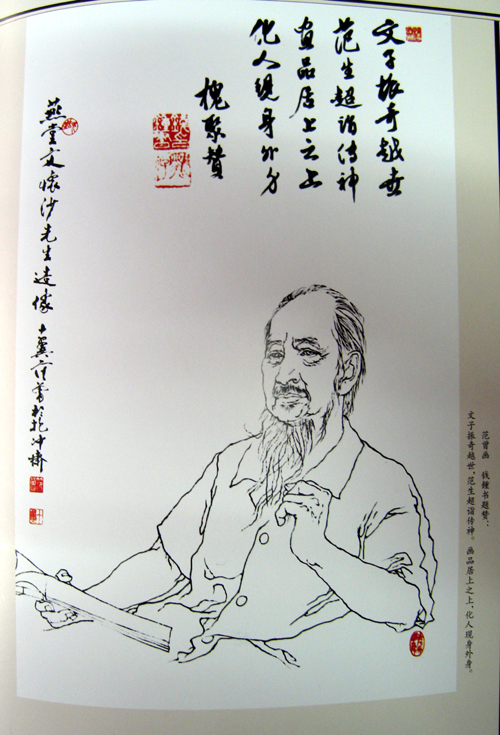 文子振奇越世
范生超诣传神
畫品居上之上
化人現身外身
槐聚贊
燕堂文懷沙先生造像 十翼范曾於抱冲齋
范曾画 钱鍾书题赞:
文子振奇越世,范生超诣传神。画品居上之上,化人现身外身。